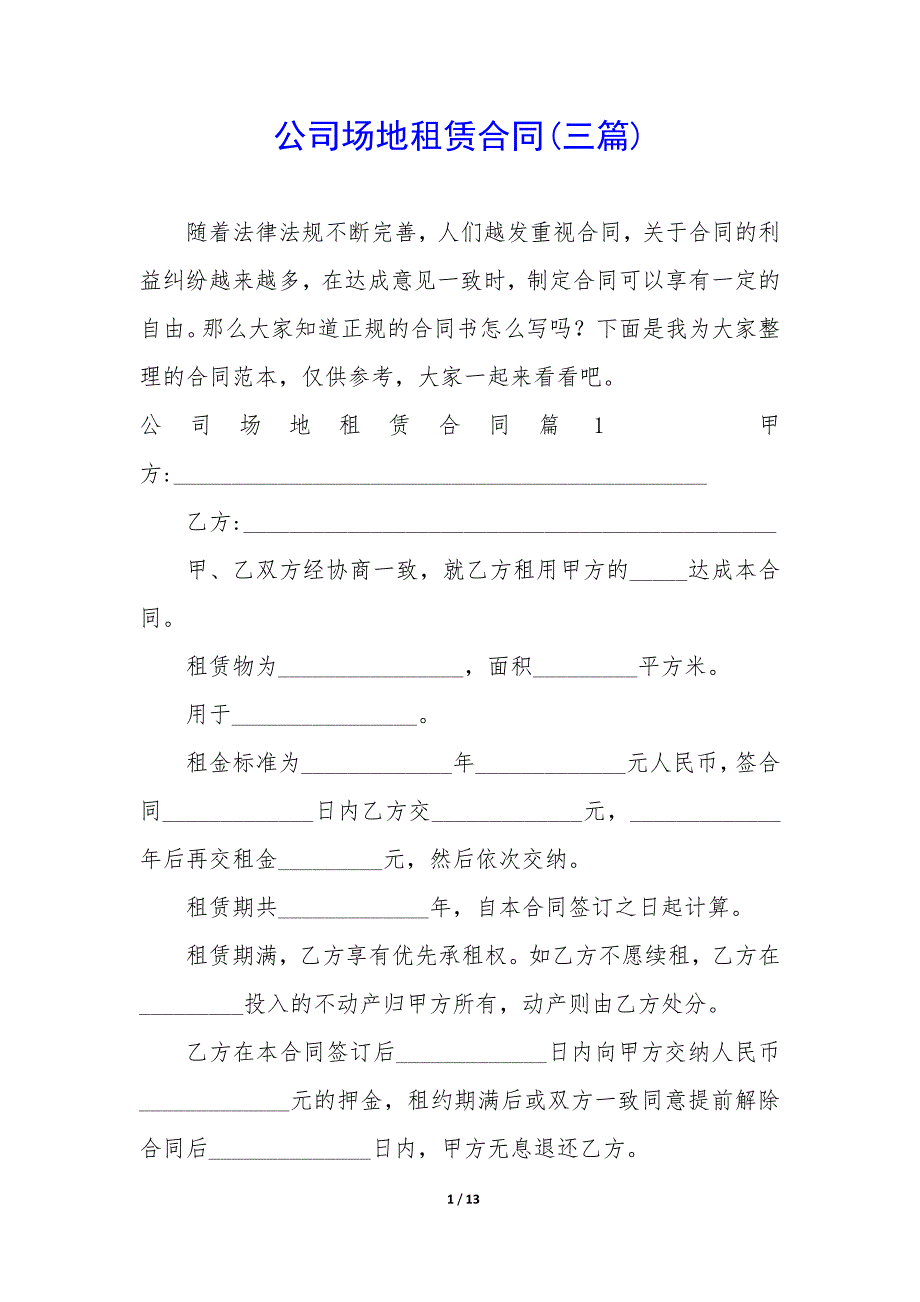 公司场地租赁合同(三篇)
随着法律法规不断完善，人们越发重视合同，关于合同的利
益纠纷越来越多，在达成意见一致时，制定合同可以享有一定的
自由。那么大家知道正规的合同书怎么写吗？下面是我为大家整
理的合同范本，仅供参考，大家一起来看看吧。
公司场地租赁合同篇1 甲
方:______________________________________________
乙方:______________________________________________
甲、乙双方经协商一致，就乙方租用甲方的_____达成本合
同。
租赁物为________________，面积_________平方米。
用于________________。
租金标准为_____________年_____________元人民币，签合
同_____________日内乙方交_____________元，_____________
年后再交租金_________元，然后依次交纳。
租赁期共_____________年，自本合同签订之日起计算。
租赁期满，乙方享有优先承租权。如乙方不愿续租，乙方在
_________投入的不动产归甲方所有，动产则由乙方处分。
乙方在本合同签订后_____________日内向甲方交纳人民币
_____________元的押金，租约期满后或双方一致同意提前解除
合同后______________日内，甲方无息退还乙方。
1 / 13